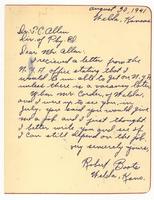 August 30, 1941
Welda, Kansas
Dear Mr. Allen:
I received a letter from the
N.Y.A office stating that I
would be able to get on N.Y.A
unless there is a vacancy later.
When Mr.
and I was up to see you, in
July, you said you would give
me a job and I just thought
I better write you and see if
I can still depend on the job.
Very sincerely yours,
Robert
Welda, Kans.